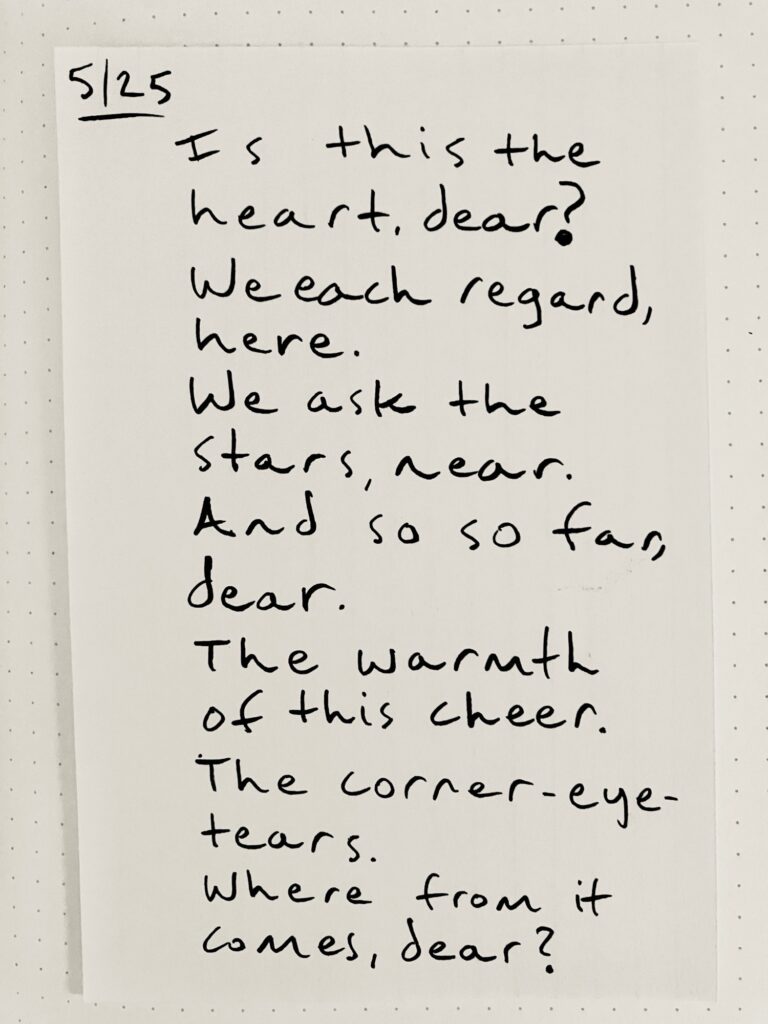 5/25
Is this the
heart, dear?
We each regard,
here.
We ask the
stars, near.
And so so far,
dear.
The warmth
of this cheer.
The corner-eye-
tears.
Where from it
comes, dear?